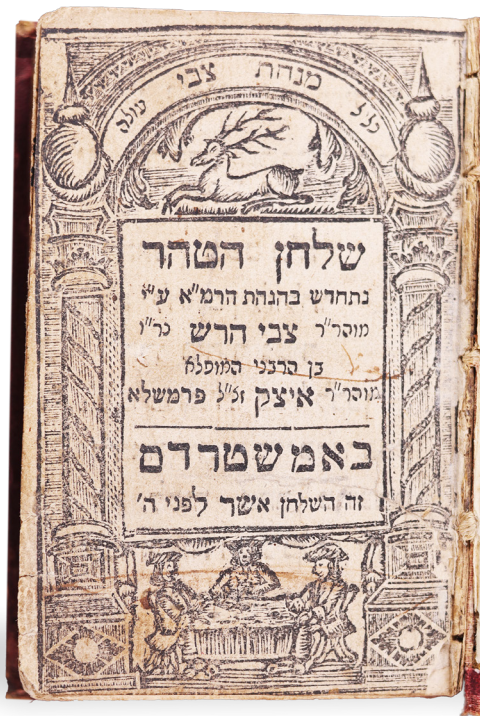 מנחת צבי עולה
שלחן הטהר
נתחדש בהגהת הרמ"א ע"י
מוהר"ר צבי הרש
בן הרבני המופלא
מוהר"ר איצק ז"ל פרמשלא
באמשטרדם
זה השלחן אשר לפני ה'